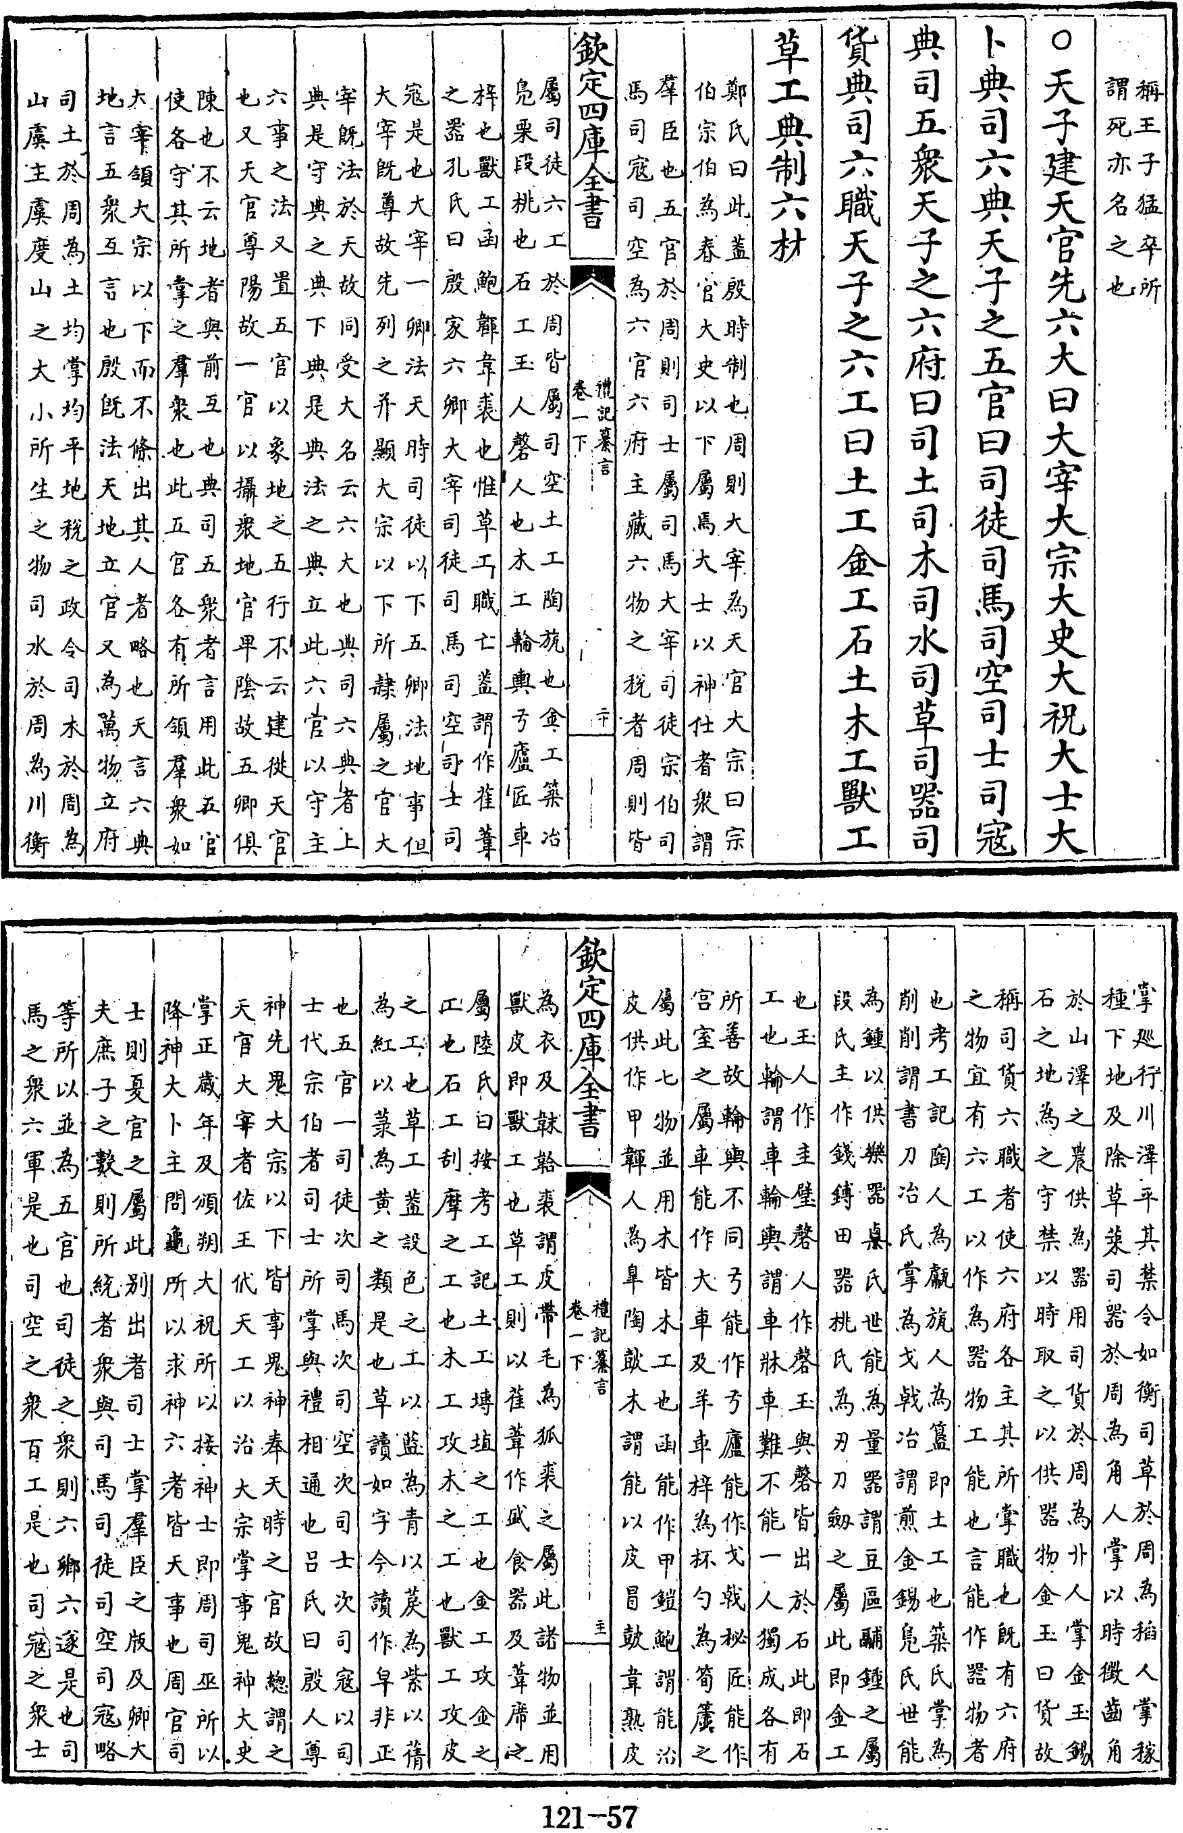 稱王子猛卒所
謂死亦名之也
○天子建天官先六大曰大宰大宗大史大祝大士大
卜典司六典天子之五官曰司徒司馬司空司士司寇
典司五衆天子之六府曰司土司木司水司草司器司
貨典司六職天子之六工曰土工金工石土木工獸工
草工典制六材
鄭氏曰此蓋殷時制也周則大宰為天官大宗曰宗
伯宗伯為春官大史以下屬焉大士以神仕者衆謂
羣臣也五官於周則司士屬司馬大宰司徒宗伯司
馬司寇司空為六官六府主藏六物之稅者周則皆
欽定四庫全書
禮記纂言
卷一下
二十
屬司徒六工於周皆屬司空土工陶旊也金工築冶
鳧栗段桃也石工玉人磬人也木工輪輿弓廬匠車
梓也獸工函鮑韗韋裘也惟草工職亡蓋謂作萑葦
之器孔氏曰殷家六卿大宰司徒司馬司空司士司
寇是也大宰一卿法天時司徒以下五卿法地事但
大宰既尊故先列之并顯大宗以下所隸屬之官大
宰既法於天故同受大名云六大也典司六典者上
典是守典之典下典是典法之典立此六官以守主
六事之法又置五官以象地之五行不云建從天官
也又天官尊陽故一官以攝衆地官卑陰故五卿俱
陳也不云地者與前互也典司五衆者言用此五官
使各守其所掌之羣衆也此五官各有所領羣衆如
大宰領大宗以下而不條出其人者略也天言六典
地言五衆互言也殷既法天地立官又為萬物立府
司土於周為土均掌均平地稅之政令司木於周為
山虞主虞度山之大小所生之物司水於周為川衡
掌巡行川澤平其禁令如衡司草於周為稻人掌稼
種下地及除草萊司器於周為角人掌以時徵齒角
於山澤之農供為器用司貨於周為丱人掌金玉錫
石之地為之守禁以時取之以供器物金玉曰貨故
稱司貨六職者使六府各主其所掌職也既有六府
之物宜有六工以作為器物工能也言能作器物者
也考工記陶人為甗旊人為簋即土工也築氏掌為
削削謂書刀冶氏掌為戈戟冶謂煎金錫鳧氏世能
為鍾以供樂器㮚氏世能為量器謂豆區鬴鍾之屬
段氏主作錢鎛田器桃氏為刃刀劒之屬此即金工
也玉人作圭璧磬人作磬玉與磬皆出於石此即石
工也輪謂車輪輿謂車牀車難不能一人獨成各有
所善故輪輿不同弓能作弓廬能作戈戟柲匠能作
宮室之屬車能作大車及羊車梓為杯勺為筍簴之
屬此七物並用木皆木工也函能作甲鎧鮑謂能治
皮供作甲韗人為臯陶鼓木謂能以皮冒鼓韋熟皮
欽定四庫全書
禮記纂言
卷一下
主
為衣及韎韐裘謂皮帶毛為狐裘之屬此諸物並用
獸皮即獸工也草工則以萑葦作盛食器及葦席之
屬陸氏曰按考工記土工摶埴之工也金工攻金之
工也石工刮摩之工也木工攻木之工也獸工攻皮
之工也草工蓋設色之工以藍為青以茢為紫以蒨
為紅以菉為黃之類是也草讀如字今讀作皁非正
也五官一司徒次司馬次司空次司士次司寇以司
士代宗伯者司士所掌與禮相通也呂氏曰殷人尊
神先鬼大宗以下皆事鬼神奉天時之官故總謂之
天官大宰者佐王代天工以治大宗掌事鬼神大史
掌正歲年及頒朔大祝所以接神士即周司巫所以
降神大卜主問龜所以求神六者皆天事也周官司
士則夏官之屬此别出者司士掌羣臣之版及卿大
夫庶子之數則所統者衆與司馬司徒司空司寇略
等所以並為五官也司徒之衆則六鄉六遂是也司
馬之衆六軍是也司空之衆百工是也司寇之衆士
121-57